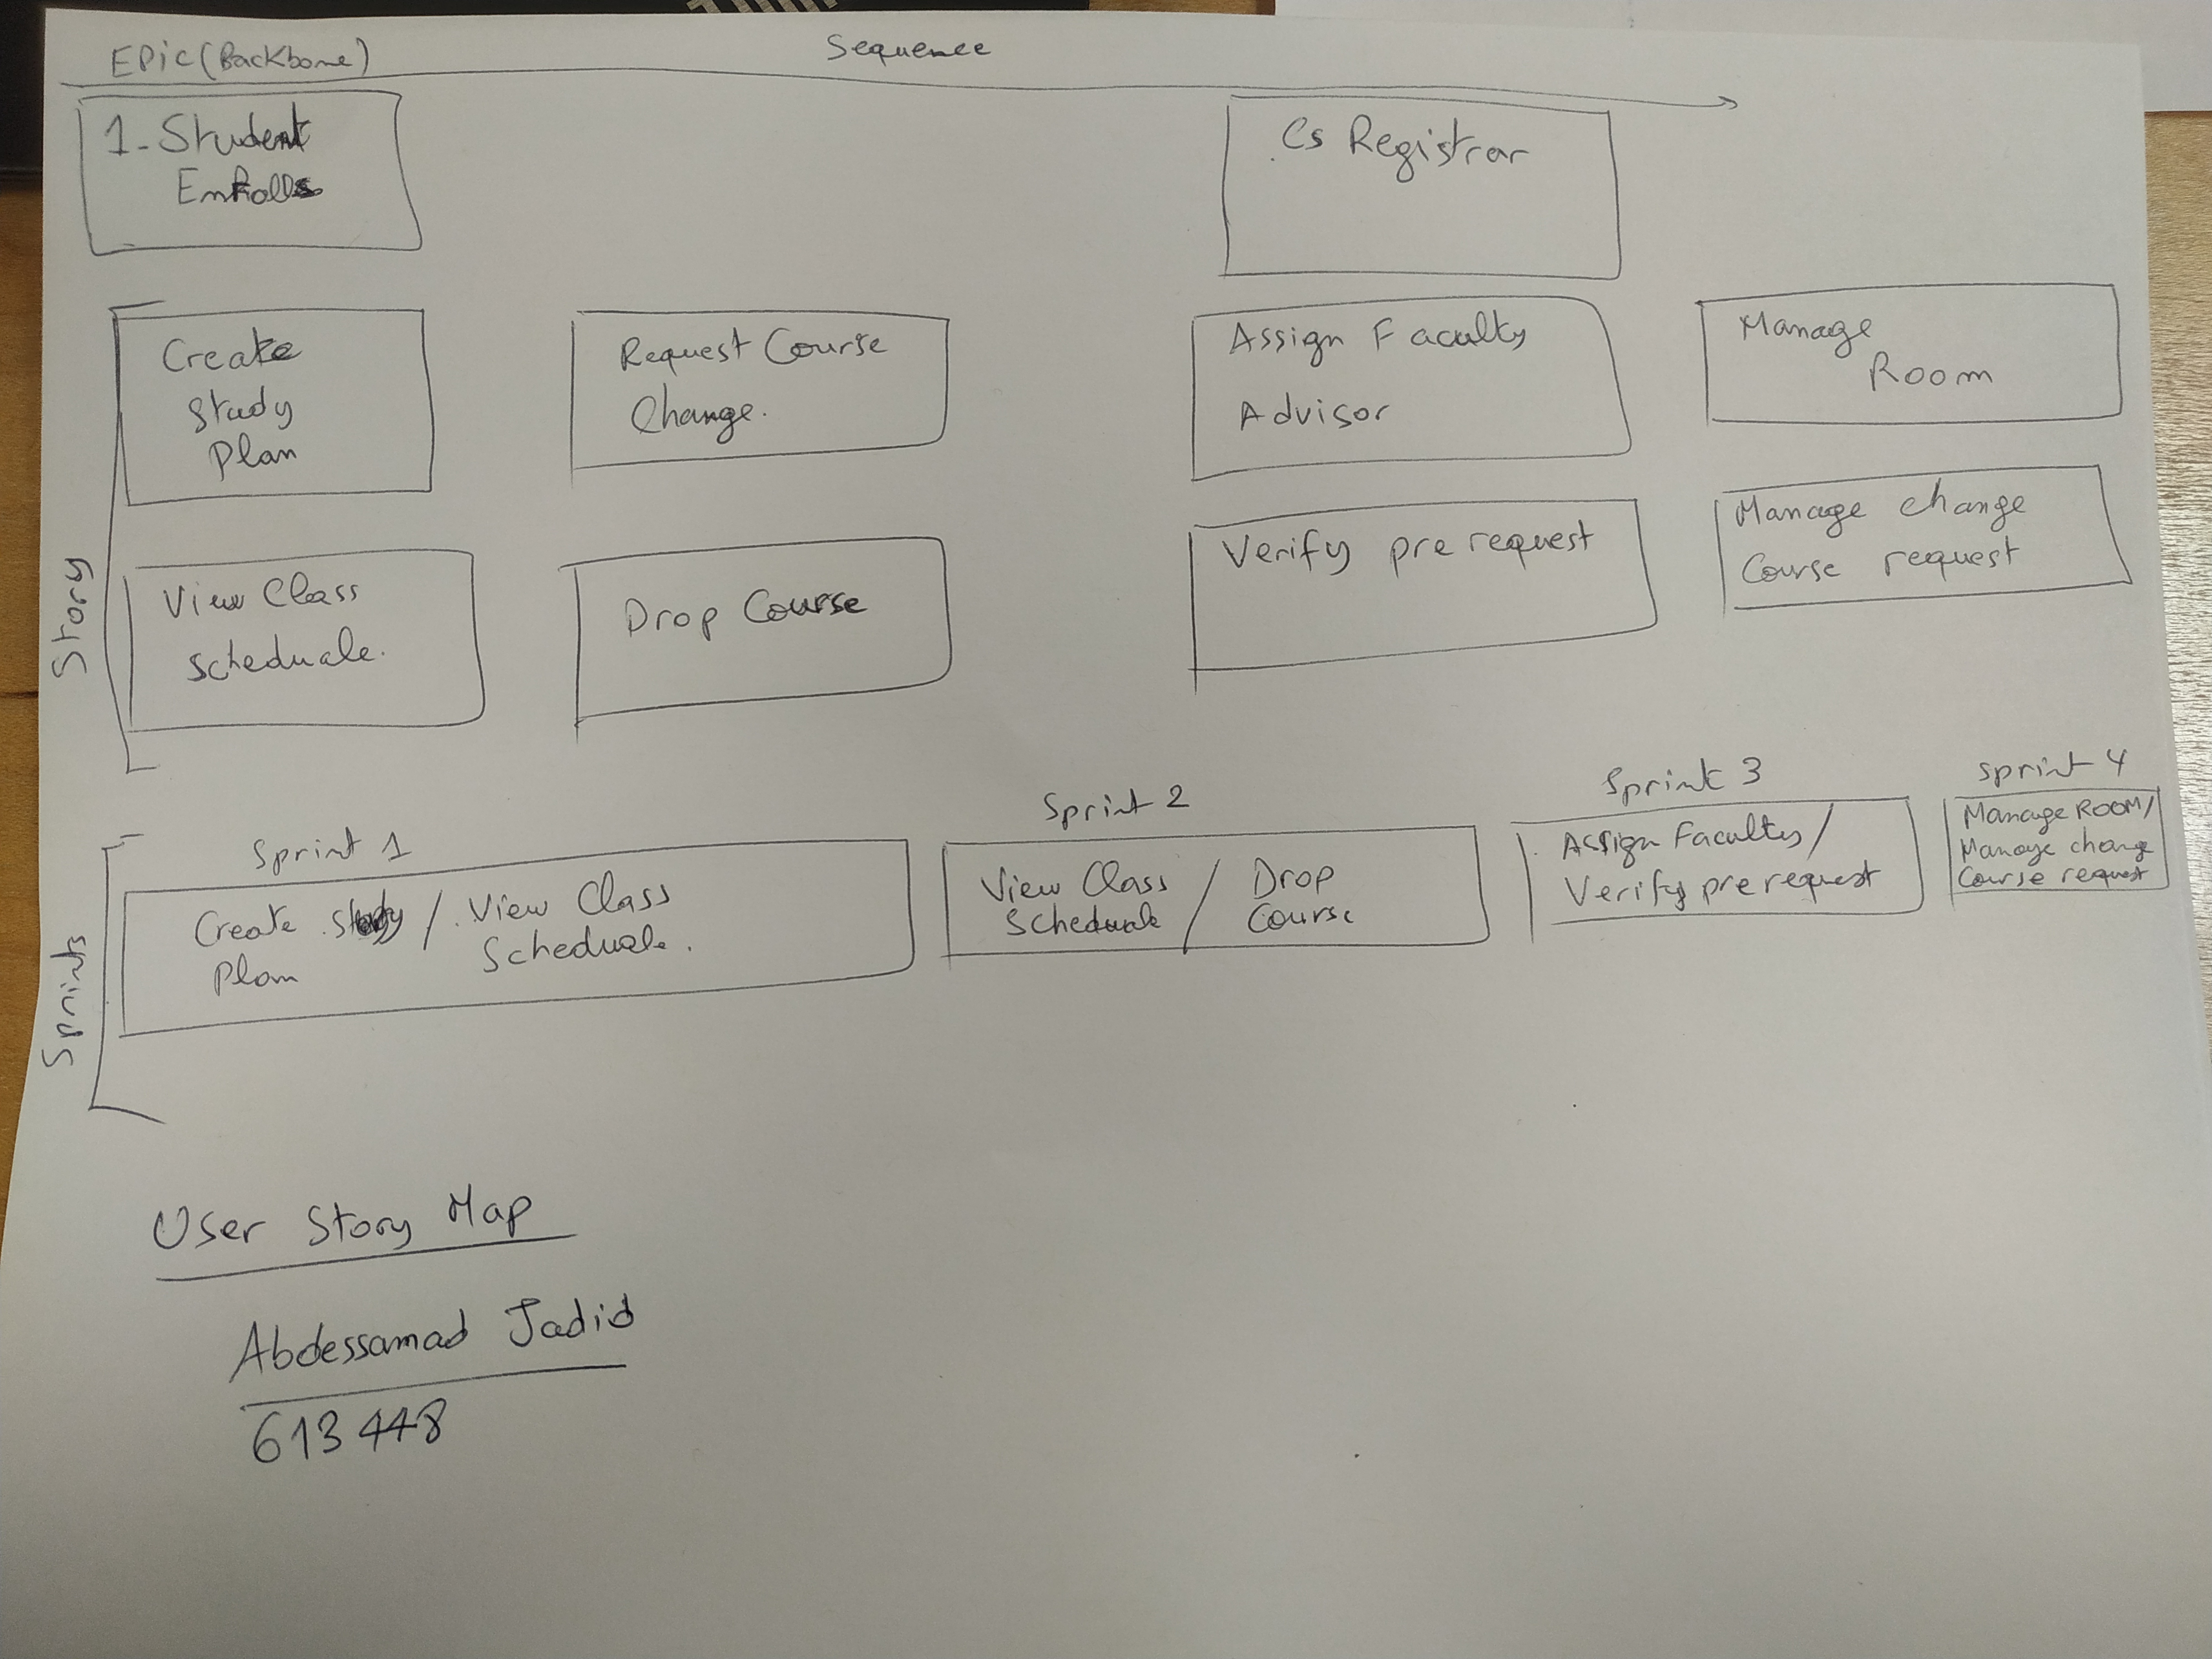 EPic (Backbone)
Sequence
1- Student
Enrolls
Cs Registrar
Create
Study
Plan
Request Course
Change.
Assign Faculty
Advisor
Manage
Room
Story
View Class
Scheduale.
Drop Course
Verify pre request
Manage change
Course request
Sprints
Sprint 1
Create Study / View Class
Plan Scheduale.
Sprint 2
View Class / Drop
Scheduale Course
Sprint 3
Assign Faculty /
Verify pre request
sprint 4
Manage ROOM /
Manage change
Course request
User Story Map
Abdessamad Jadid
613448